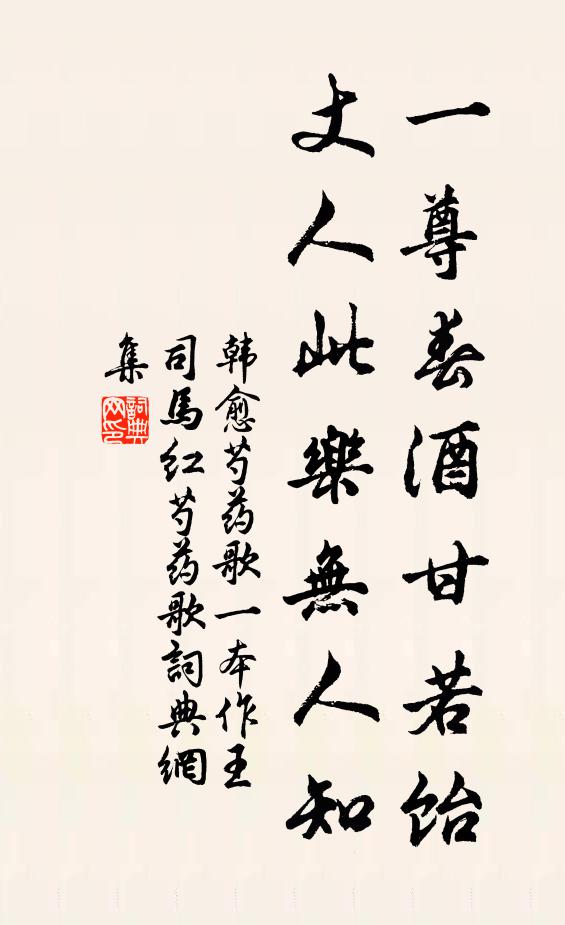 一尊春酒甘若飴
丈人此樂無人知
韩愈芍药歌一本作王
司馬红芍药歌詞典網
集
詞典網印